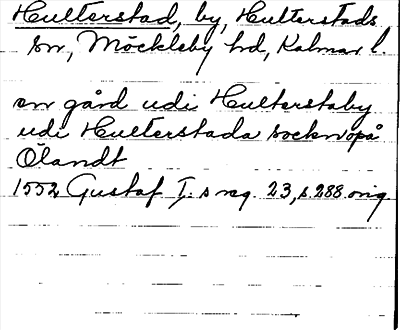 Hulterstad, by, Hulterstads
sn, Möckleby hd, Kalmar l.
en gård udi Hulterstaby
udi Hulterstada sockn på
Ölandt
1552 Gustaf I:s reg. 23, s. 288 orig